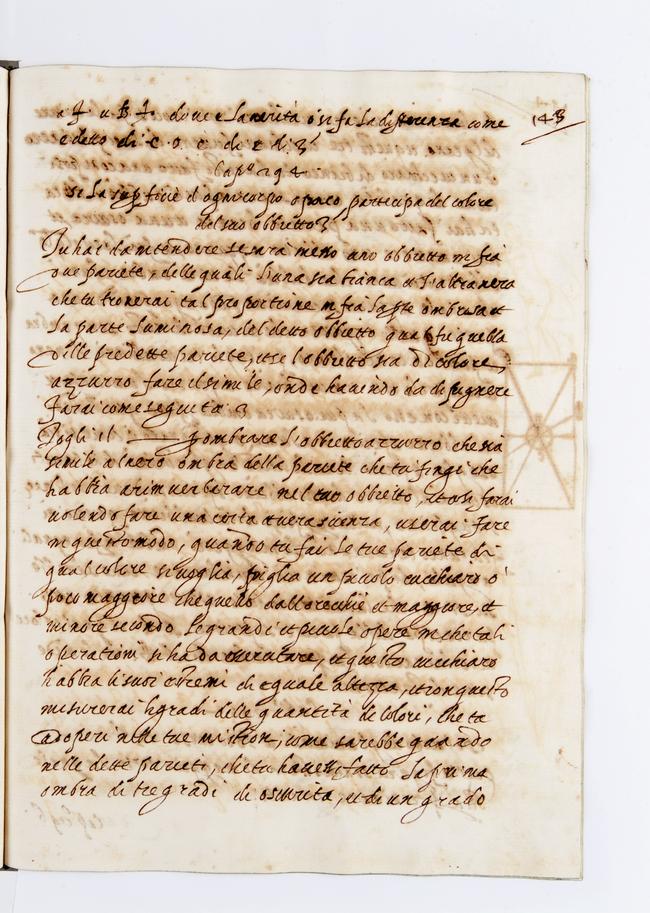 143
a f u b f. dove e la verità o si fa la differenza come
e detto di c. o. c. di e d. 3
Cap.º 294
Se La superficie d'ogni corpo opaco partecipa del colore
del suo obbietto 3
Tu hai da intendere se sarà messo uno obbietto infra
due pariete, delle quali l'una sia bianca et l'altra nera
che tu troverai tal proportione infra la pte ombrosa et
la parte luminosa, del detto obbietto qual fu quella
delle predette pariete, et se l'obbietto sia di colore
azzurro fare il simile, onde havendo da dipignere
farai come seguita. 3
Togli il p ombrare l'obbietto azzurro che sia
simile al nero ombra della pariete che tu fingi che
habbia a rinverberare nel tuo obbietto, et così farai
volendo fare una certa et vera scienza, userai fare
in questo modo, quando tu fai le tue pariete di
qual colore si voglia, piglia un picolo cucchiaro o
poco maggiore che quello dall'orecchie et maggiore, et
minore secondo le grandi et picole opere in che tali
operationi si ha da exercitare, et questo cucchiaro
habbia li suoi extremi di eguale altezza, et con questo
misurerai li gradi delle quantità di colori, che tu
adoperi nelle tue mistion, come sarebbe quando
nelle dette parieti, che tu havessi fatto la prima
ombra di tre gradi di oscurità, et di un grado